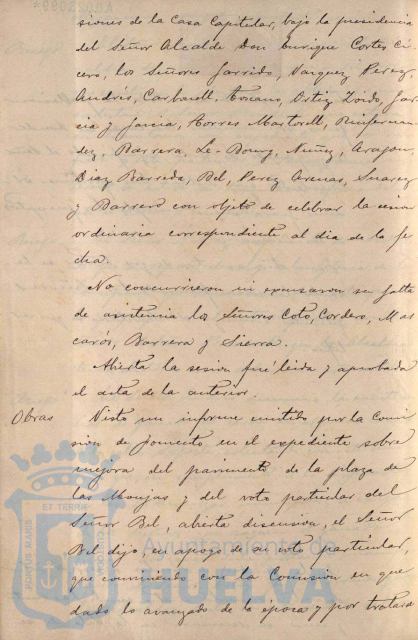 siones de la Casa Capitular, bajo la presidencia
del Señor Alcalde Don Enrique Cortes Cí
cero, los Señores Garrido, Vazquez Perez,
Andrés, Carbonell, Toscano, Ortiz Zoido, Gar
cia y Garcia, Torres Martorell, Buifernan
dez, Barrera, Le-Bourg, Nuñez, Aragon,
Diaz Barreda, Bel, Perez Arenas, Suarez
y Barrero con objeto de celebrar la sesion
ordinaria correspondiente al dia de la fe
cha.
No concurrieron ni escusaron su falta
de asistencia los Señores Coto, Cordero, Mas
carós, Barrera y Sierra.
Abierta la sesion fué leida y aprobada
el acta de la anterior.
Obras
Visto un informe emitido por la Comi
sion de fomento, en el expediente sobre
mejora del pavimento de la plaza de
las Monjas y del voto particular del
Señor Bel, abierta discusion, el Señor
Bel dijo, en apoyo de su voto particular,
que conviniendo con la Comision en que
dado lo avanzado de la época y por tratarse
Ayuntamiento de
HUELVA
PORTUS MARIS
ET TERRAE
CUSTODIA